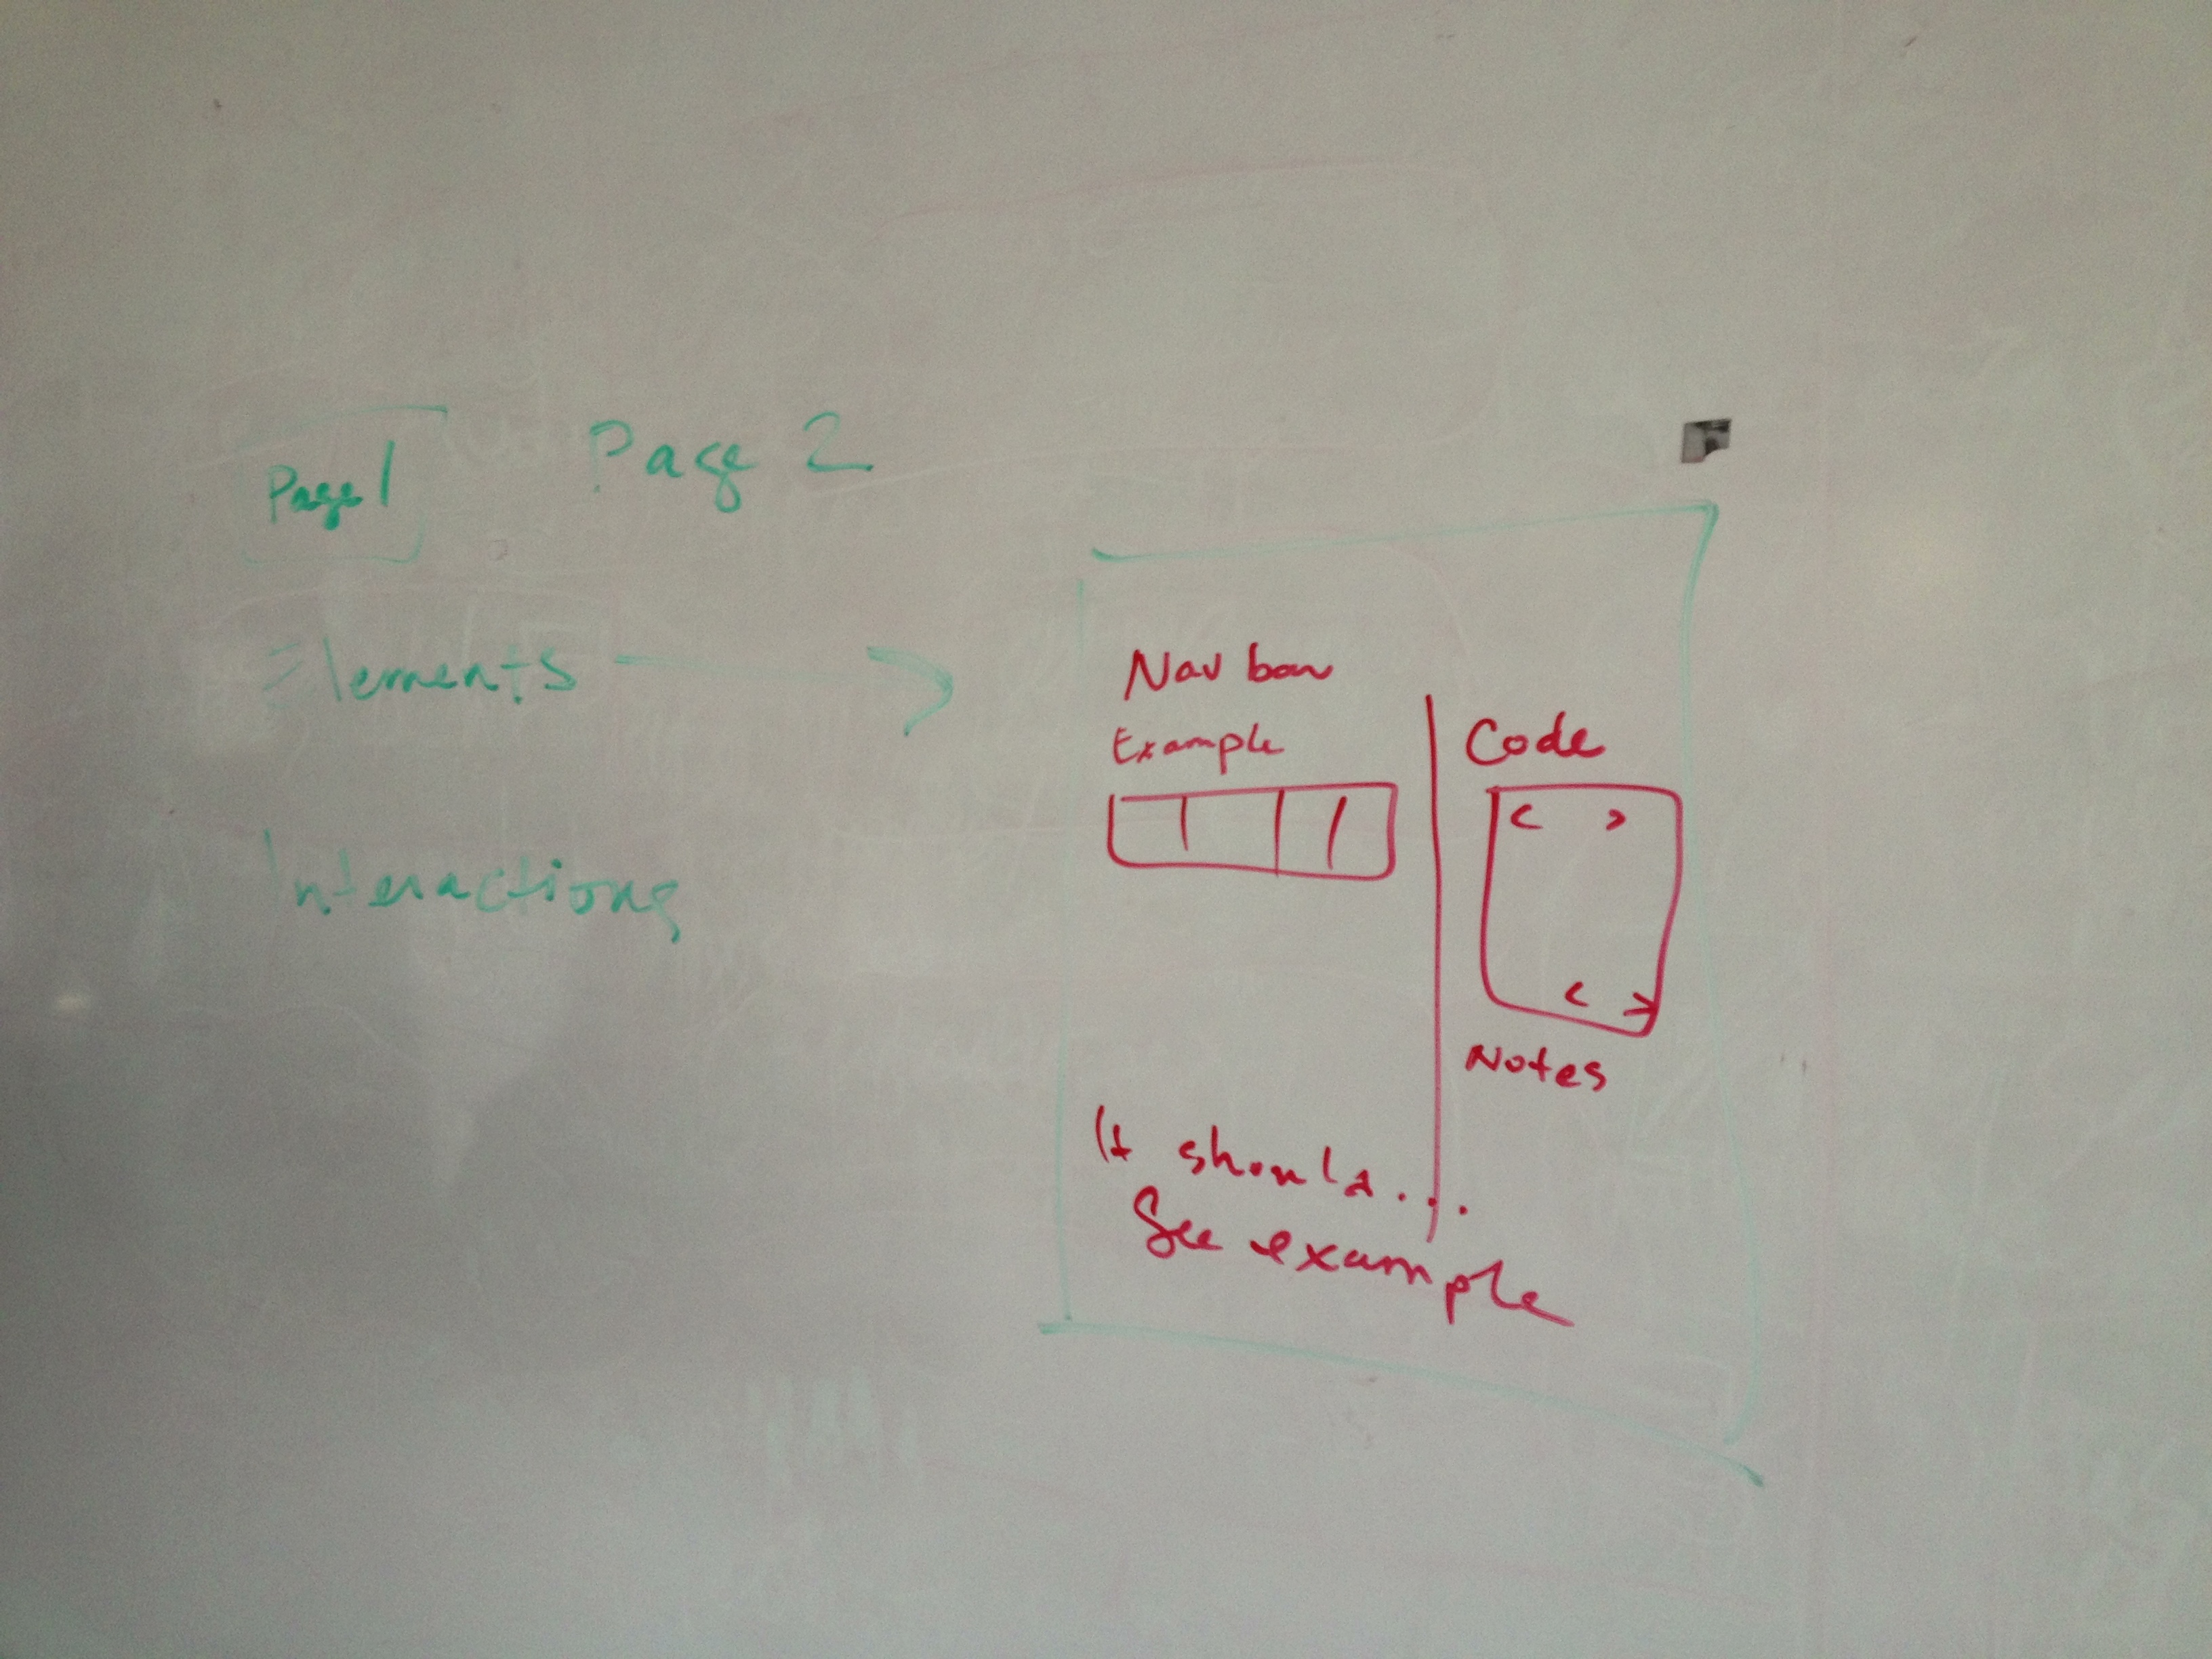 Page 1
Page 2
Elements
Interactions
Nav bar
Example
Code
< >
< >
Notes
It should...
See example